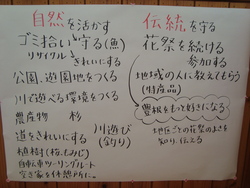 自然を活かす
ゴミ拾いで守る(魚)
リサイクル きれいにする
公園、遊園地をつくる
川で遊べる環境をつくる
農産物 杉
道をきれいにする
川遊び
(釣り)
植樹(桜、もみじ)
自転車ツーリングルート
空き家を休憩所に。
伝統を守る
花祭を続ける
参加する
地域の人に教えてもらう
(特産品)
豊根をもっと好きになる
地区ごとの花祭のよさを
知り、伝える